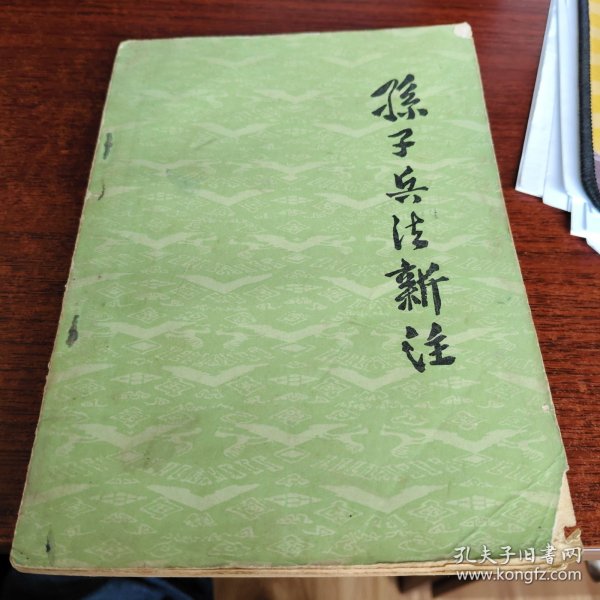 孫子兵法新注
孔夫子旧书网
www.kongfz.com